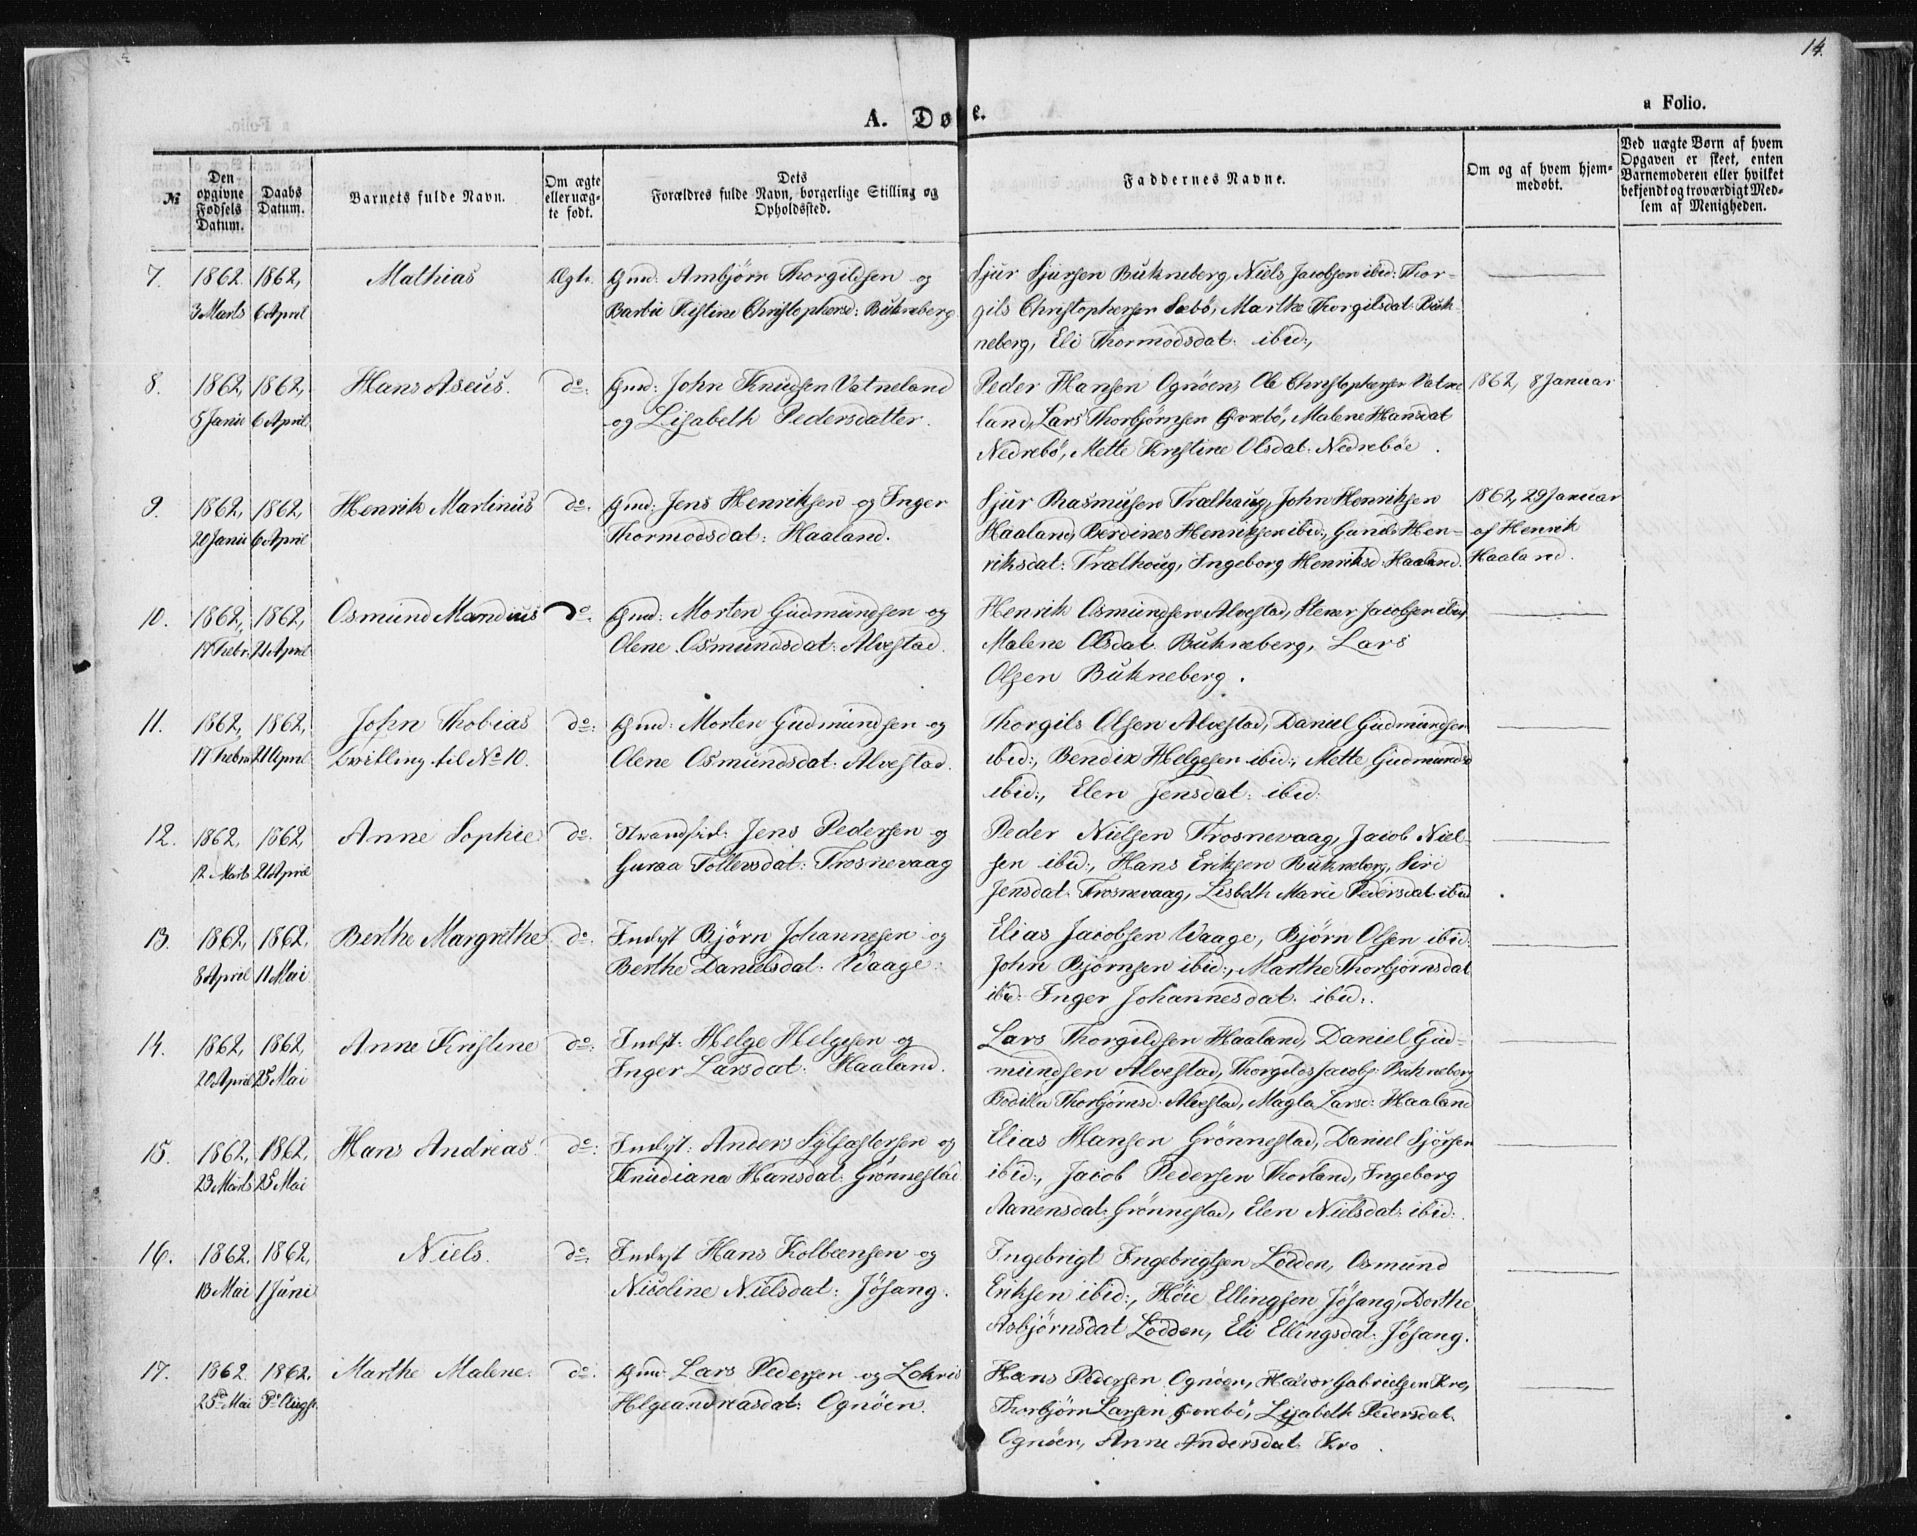 14.
a Folio.
A. Døbe.
№
Den opgivne Fødsels Datum.
Daabs Datum.
Barnets fulde Navn.
Om ægte eller uægte født.
Dets Forældres fulde Navn, borgerlige Stilling og Opholdssted.
Faddernes Navne.
Om og af hvem hjemmedøbt.
Ved uægte Børn af hvem Opgaven er skeet, enten Barnemoderen eller hvilket bekjendt og troværdigt Medlem af Menigheden.
7. 1862. 1862, Mathias Ægte Gmd: Ambjørn Thorgildsen og Sjur Sjursen Bukneberg, Niels Jacobsen ibid: Thor-
3 Marts 6 April Barbu Kistine Christophersd: Bukneberg gils Christophersen Sæbö, Marthe Thorgilsdat: Buk-
neberg, Eli Thormodsdat: ibid:,
8. 1862, 1862, Hans Aseus. do: Gmd: John Knudsen Vatneland Peder Hansen Ognöen, Ole Christophersen Vatne 1862, 8 Januar
5 Janu 6 April og Lisabeth Pedersdatter. land, Lars Thorbjörnsen Govebö, Malene Hansdat
Nedrebö, Mette Kristine Olsdat: Nedreböe.
9. 1862, 1862, Henrik Martinus do: Gmd: Jens Henriksen og Inger Sjur Rasmusen Trælhaug, John Henriksen 1862, 29 Januar
20 Janu 6 April Thormodsdat: Haaland. Haaland, Berdines Henriksen ibid:, Gunda Hen- af Henrik
riksdat: Trælhoug, Ingeborg Henriksd: Haaland. Haaland.
10. 1862, 1862, Osmund Mandius do Gmd: Morten Gudmundsen og Henrik Osmundsen Alvestad, Stener Jacobsen ibid,
17 Febr: 21 April Olene Osmundsdat: Alvestad. Malene Olsdat Bukneberg, Lars
Olsen Bukneberg.
11. 1862, 1862, John Thobias do: Gmd: Morten Gudmundsen og Thorgils Olsen Alvestad, Daniel Gudmundsen
17 Februar 21 April Tvilling til No 10. Olene Osmundsdat: Alvestad. ibid:, Bendix Helgesen ibid:, Mette Gudmundsd
ibid:, Elen Jensdat: ibid:
12. 1862, 1862, Anne Sophie do: Strandsid: Jens Pedersen og Peder Nielsen Frosnevaag, Jacob Niel-
12 Marts 21 April Guraa Tollevsdat: Frosnevaag sen ibid:, Hans Eriksen Bukneberg, Siri
Jensdat: Frosnevaag, Lisbeth Marie Pedersdat: ibid
13. 1862, 1862, Berthe Margrethe do: Indyst Björn Johannesen og Elias Jacobsen Waage, Björn Olsen ibid:
8 April 11 Mai Berthe Danielsdat: Waage. John Björnsen ibid:, Marthe Thorbjörnsdat
ibid: Inger Johannesdat: ibid:.
14. 1862, 1862, Anne Kristine do: Indyst: Helge Helgesen og Lars Thorgildsen Haaland, Daniel Gud-
20 April 25 Mai Inger Larsdat: Haaland. mundsen Alvestad, Thorgilds Jacobs: Bukneberg
Bodilla Thorbjörnsd: Alvestad, Magla Larsd: Haaland
15. 1862, 1862, Hans Andreas do: Indyst: Anders Sylfestersen og Elias Hansen Grönnestad, Daniel Sjursen
23 Marts 25 Mai Knudiana Hansdat: Grönnestad ibid:, Jacob Pedersen Thorland, Ingeborg
Aanensdat: Grönnestad, Elen Nielsdat: ibid:.
16. 1862, 1862, Niels. do: Indyst Hans Kolbeensen og Ingebrigt Ingebrigtsen Lodden, Osmund
13 Mai 1 Juni Nicoline Nielsdat: Jösang. Eriksen ibid:, Höie Ellingsen Jösang, Dorthe
Asbjörnsdat Lodden, Eli Ellingsdat: Jösang.
17. 1862. 1862. Marthe Malene. do: Gmd: Lars Pedersen og Lokris Hans Pedersen Ognöen, Halvor Gabrielsen Kro,
25de Mai Helgeandreasdat: Ognöen. Thorbjörn Larsen Govebö, Lisabeth Pedersdat:
Ognöen, Anne Andersdat: Kro.